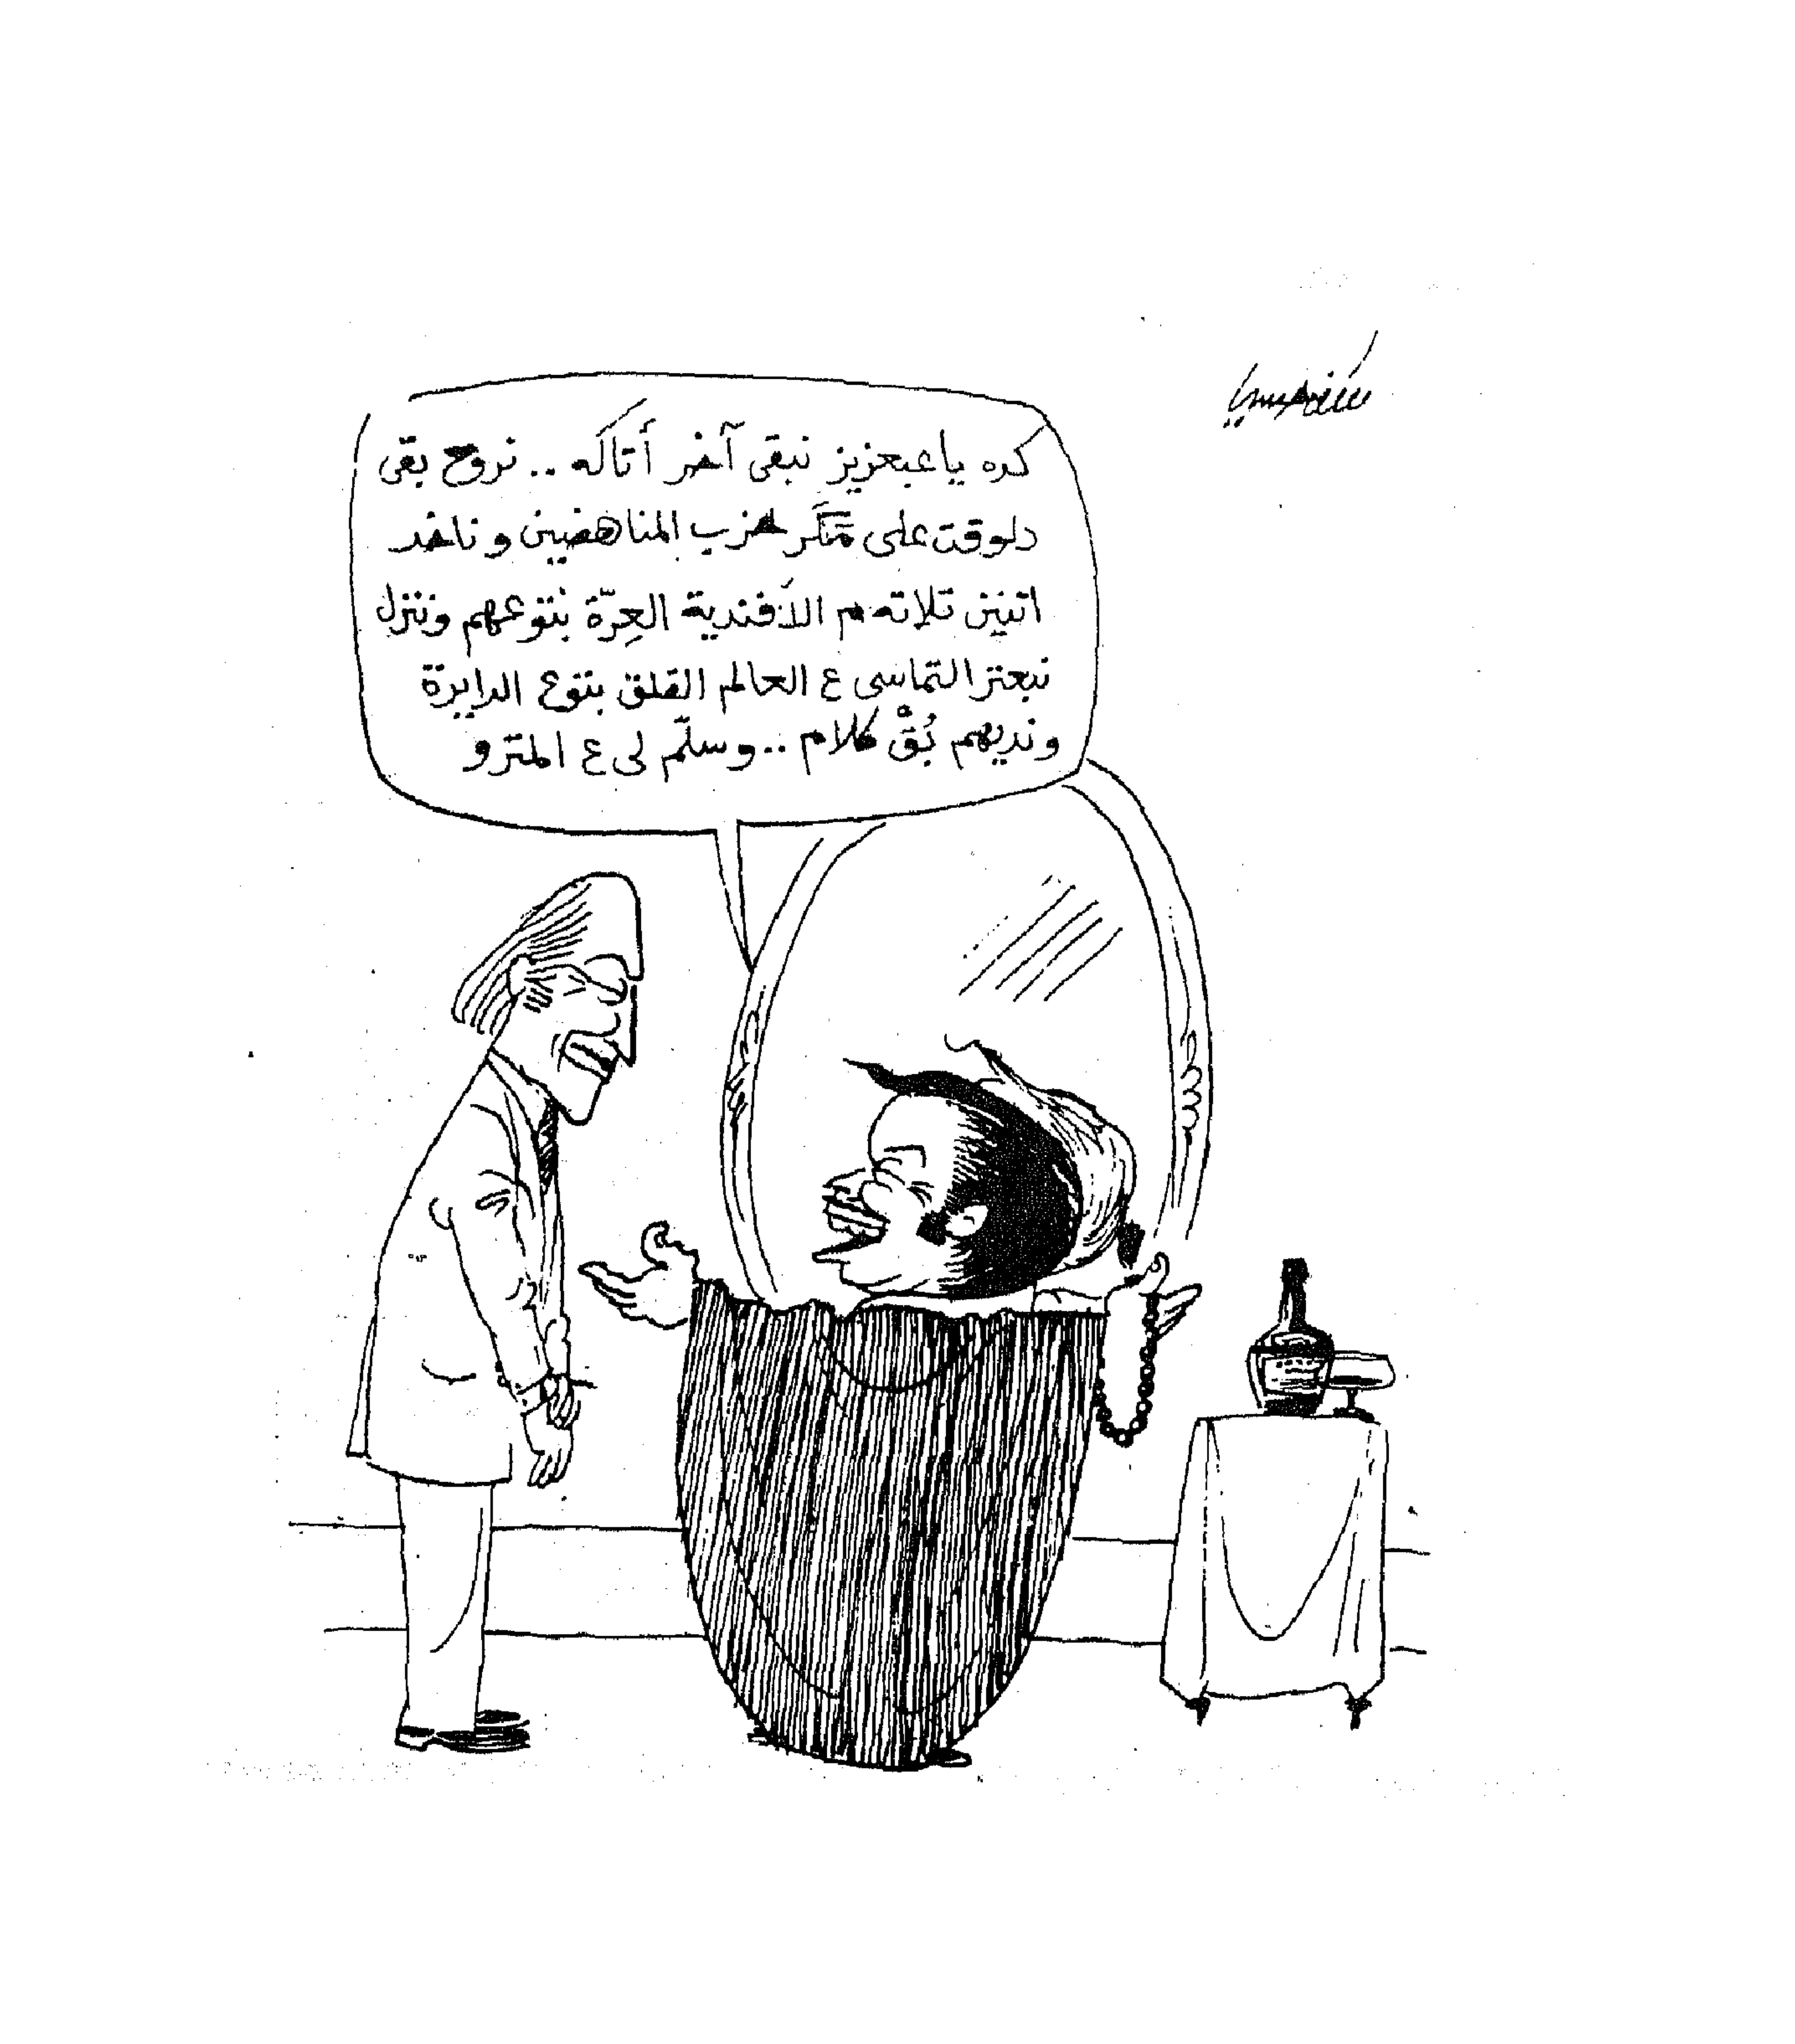 كده يا عبعزيز نبقى آخر أتاكه .. نروح بقى
دلوقت على مَقَر حزب المناهضين وناخد
اتنين تلاته م الأفندية العِرّة بتوعهم وننزل
نبعتر التماسى ع العالم القلق بتوع الدايرة
ونديهم بُقّ كلام .. وسلّم لى ع المترو